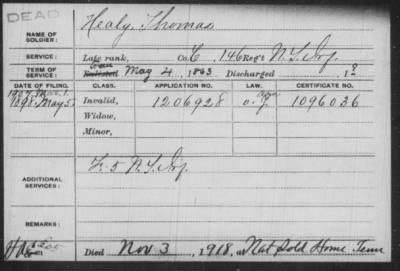 DEAD
NAME OF SOLDIER: Healy, Thomas
SERVICE: Late rank, Co. C, 146 Reg't N.Y. Inf.
TERM OF SERVICE: Enlisted May 4, 1863 Discharged , 18
DATE OF FILING. CLASS. APPLICATION NO. LAW. CERTIFICATE NO.
1907 Mar. 1.
1898, May 5 Invalid, 1206928 1096036
Widow,
Minor,
ADDITIONAL SERVICES: F. 5 N.Y. Inf.
REMARKS:
Died Nov 3, 1918, at Nat Sold Home Tenn